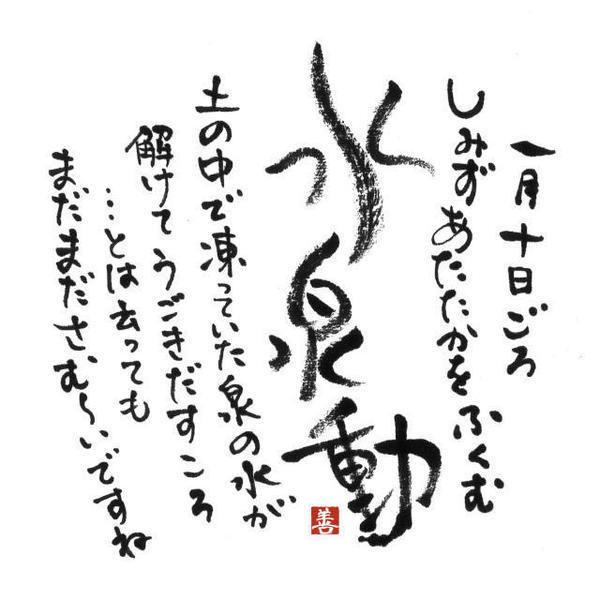 一月十日ごろ
しみずあたたかをふくむ
水泉動
善
土の中で凍っていた泉の水が
解けてうごきだすころ
…とは云っても
まだまださむ〜いですね